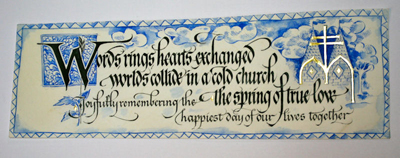 Words rings hearts exchanged
worlds collide in a cold church
Joyfully remembering the the spring of true love
happiest day of our lives together